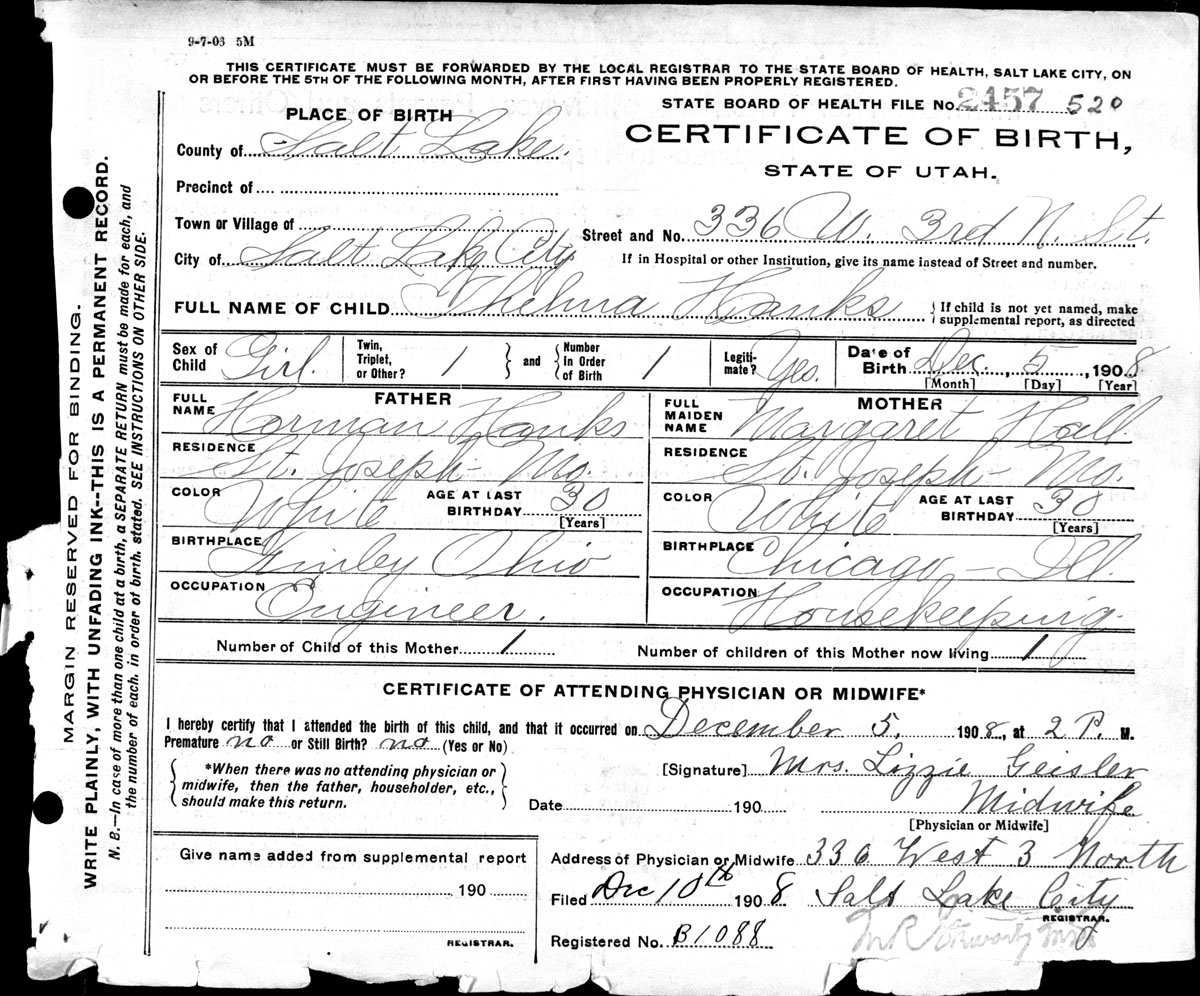 9-7-08 5M
THIS CERTIFICATE MUST BE FORWARDED BY THE LOCAL REGISTRAR TO THE STATE BOARD OF HEALTH, SALT LAKE CITY, ON
OR BEFORE THE 5TH OF THE FOLLOWING MONTH, AFTER FIRST HAVING BEEN PROPERLY REGISTERED.
STATE BOARD OF HEALTH FILE No. 2457 520
PLACE OF BIRTH
CERTIFICATE OF BIRTH,
STATE OF UTAH.
County of Salt Lake.
Precinct of
Town or Village of
Street and No. 336 W. 3rd N. St.
City of Salt Lake City
If in Hospital or other Institution, give its name instead of Street and number.
FULL NAME OF CHILD Thelma Hanks { If child is not yet named, make supplemental report, as directed
Sex of Child Girl. Twin, Triplet, or Other? 1 } and { Number in Order of Birth 1 Legitimate? Yes. Date of Birth Dec. 5, 1908
[Month] [Day] [Year]
FATHER
MOTHER
FULL NAME Horman Hanks
FULL MAIDEN NAME Margaret Hall
RESIDENCE St. Joseph - Mo.
RESIDENCE St. Joseph - Mo.
COLOR White AGE AT LAST BIRTHDAY 30 [Years]
COLOR White AGE AT LAST BIRTHDAY 30 [Years]
BIRTHPLACE Finley Ohio
BIRTHPLACE Chicago - Ill.
OCCUPATION Engineer.
OCCUPATION Housekeeping.
Number of Child of this Mother 1 Number of children of this Mother now living 1
CERTIFICATE OF ATTENDING PHYSICIAN OR MIDWIFE*
I hereby certify that I attended the birth of this child, and that it occurred on December 5. 1908, at 2 P. M.
Premature no or Still Birth? no (Yes or No)
{ *When there was no attending physician or
midwife, then the father, householder, etc.,
should make this return. }
[Signature] Mrs. Lizzie Geisler
Date 190 Midwife
[Physician or Midwife]
Give name added from supplemental report
190
REGISTRAR.
Address of Physician or Midwife 336 West 3 North
Filed Dec 10th 1908 Salt Lake City
REGISTRAR.
Registered No. B1088
MARGIN RESERVED FOR BINDING.
WRITE PLAINLY, WITH UNFADING INK--THIS IS A PERMANENT RECORD.
N. B.—In case of more than one child at a birth, a SEPARATE RETURN must be made for each, and
the number of each, in order of birth, stated. SEE INSTRUCTIONS ON OTHER SIDE.